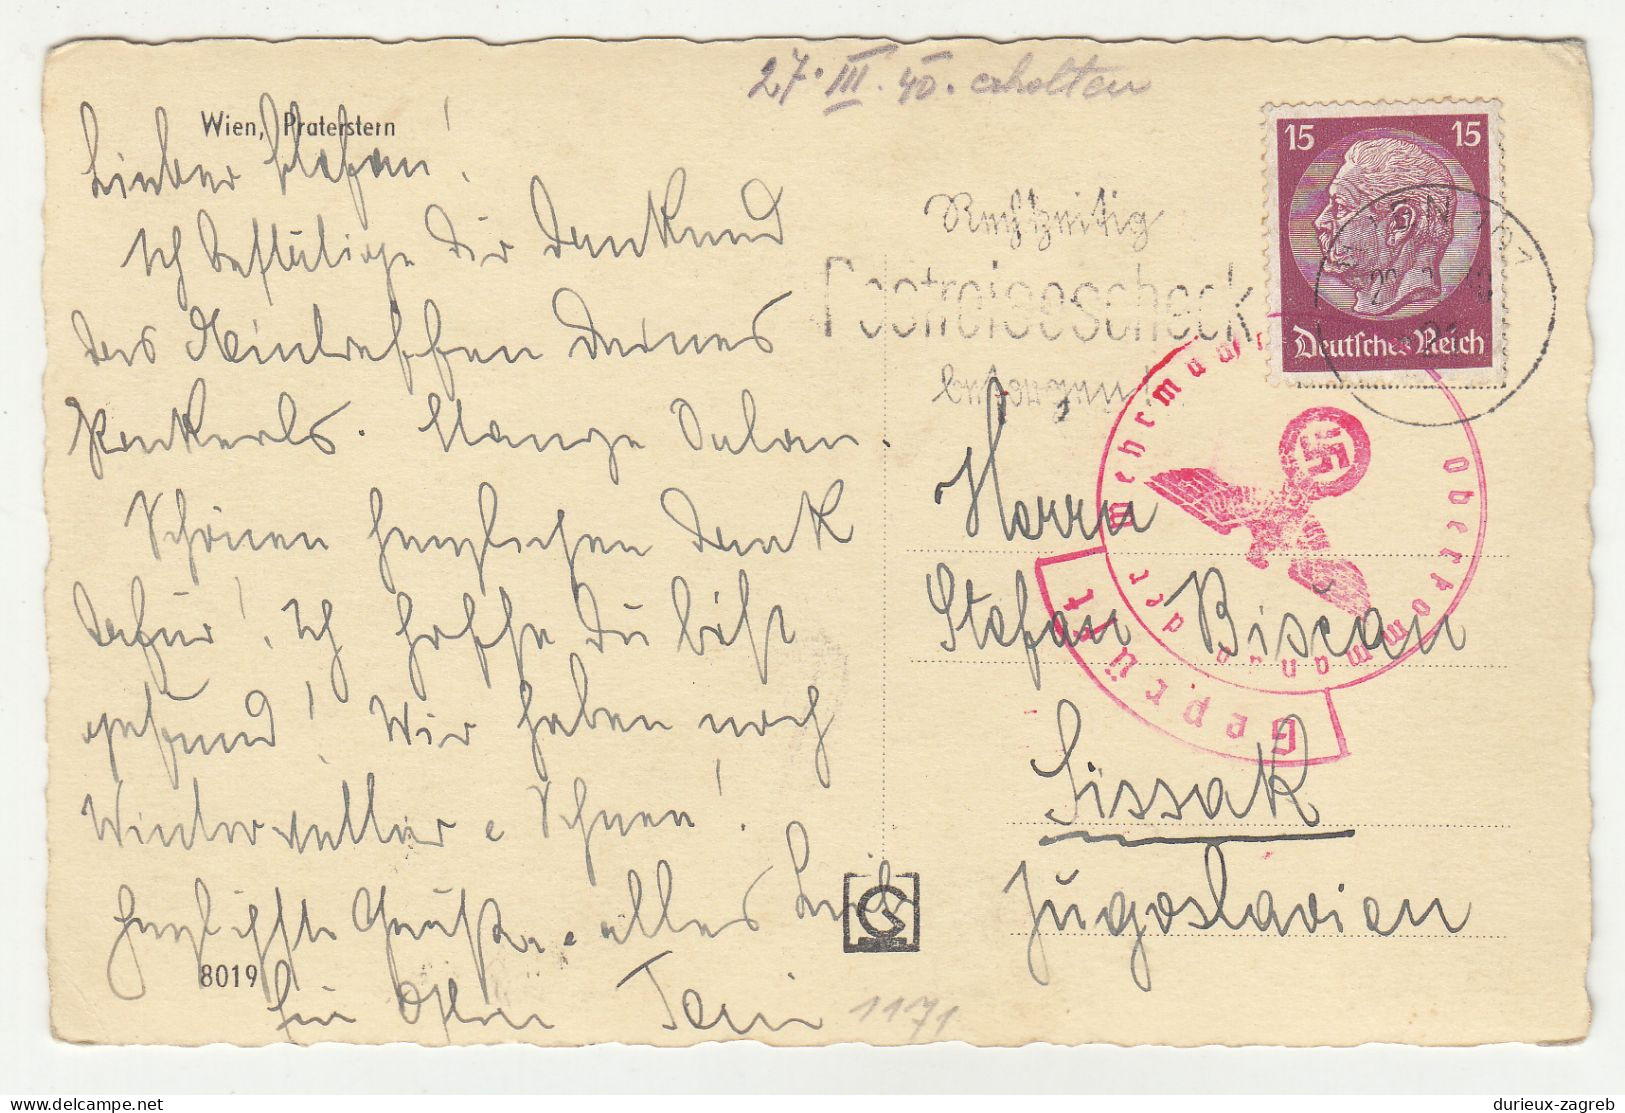 27. III. 40. erhalten
Wien, Praterstern
Lieber Stefan!
Ich bestätige Dir dankend
das Eintreffen Deines
Pankerls. Lange Dulan.
Schönen herzlichen Dank
dafür! Ich hoffe Du bist
gesund! Wir haben noch
Winterwetter e Schnee!
Herzlichste Grüße e alles Liebe
für Ostern Toni
8019
1171
Rechtzeitig
Postreisescheck
besorgen!
15 15
Deutsches Reich
WIEN
Oberkommando der Wehrmacht
Geprüft
Herrn
Stefan Bišćan
Sissak
Jugoslavien
durieux-zagreb
www.delcampe.net